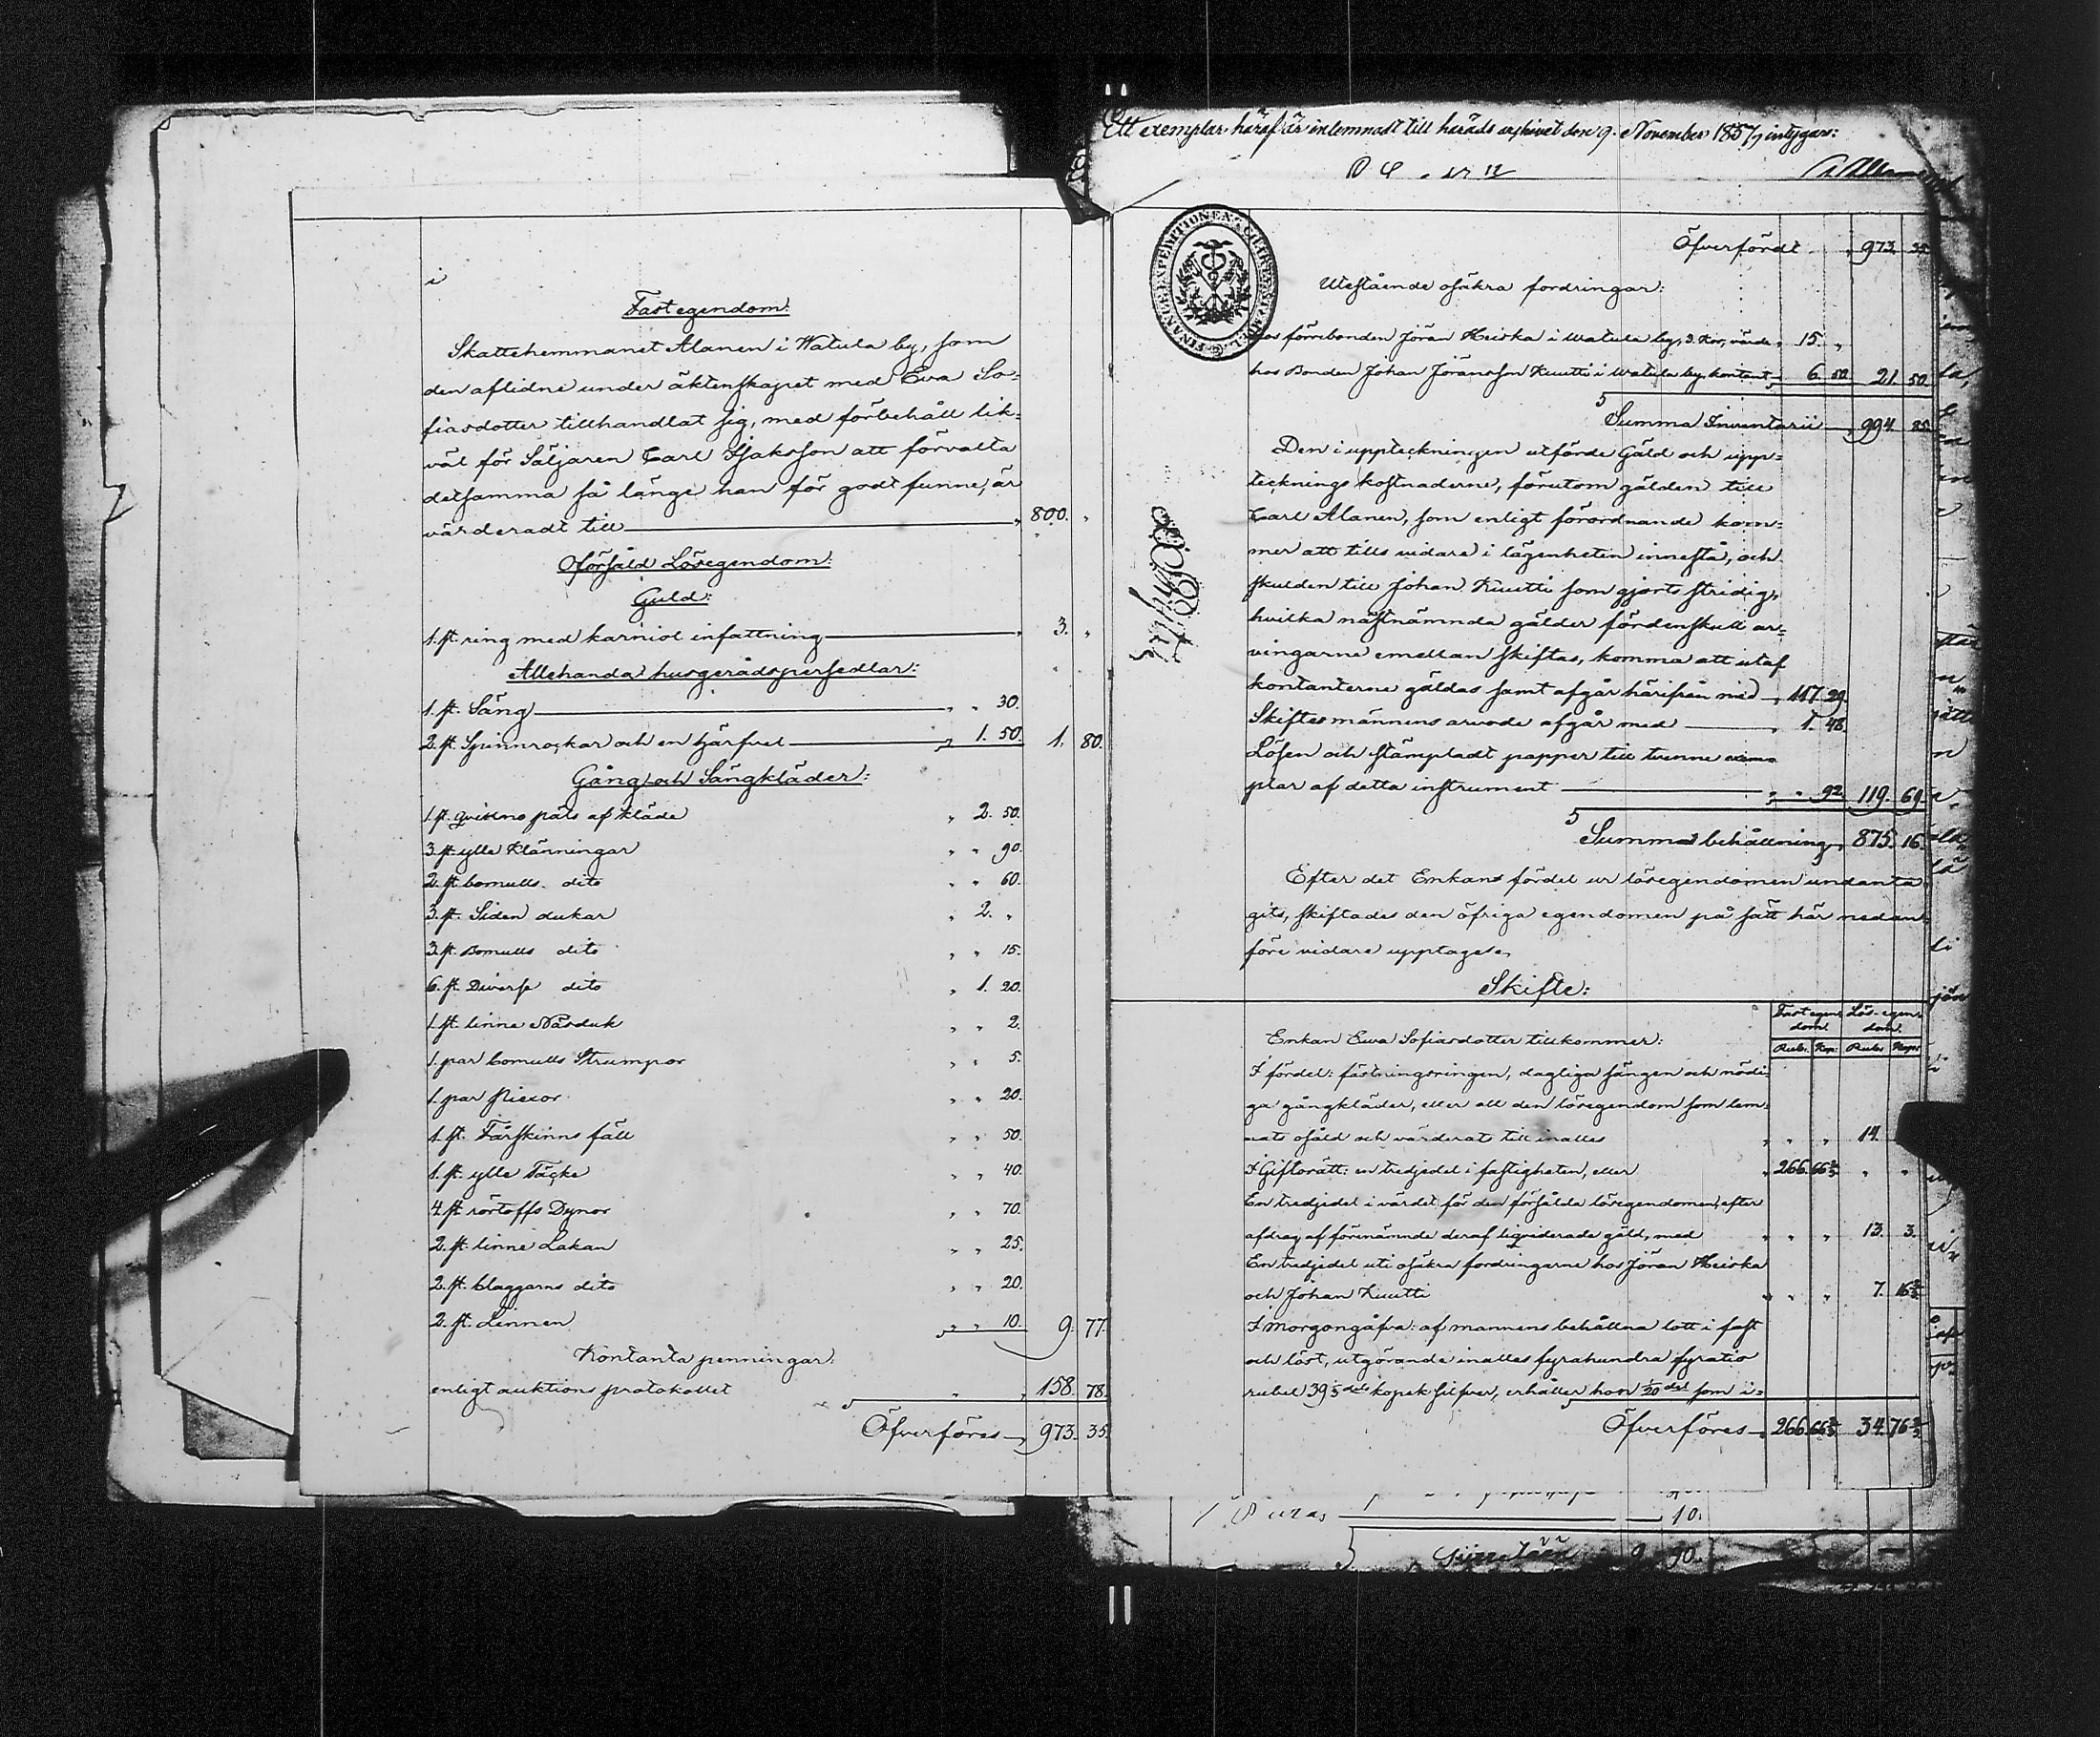 Fast egendom:
Skattehemmanet Alanen i Watula by, som
den aflidne under äktenskapet med Eva So=
fiasdotter tillhandlat sig, med förbehåll lik=
väl för Säljaren Carl Isaksson att förvalta
detsamma så länge han för godt funne, är
värderadt till „ 800. „
Oförsåld Lösegendom:
Guld:
1. st. ring med karniol infattning „ 3. „
Allehanda husgerådspersedlar:
1. st. Säng „ „ 30.
2. st. Spinnrockar och en härfvel „ 1. 50. 1. 80.
Gång och Sängkläder:
1. st. qvinns päls af kläde „ 2. 50.
3. st. ylle Klänningar „ „ 90.
2. st. bomulls dito „ „ 60.
3. st. Siden dukar „ 2. „
3. st. Bomulls dito „ „ 15.
6. st. Diverse dito „ 1. 20.
1. st. linne Näsduk „ „ 2.
1. par bomulls Strumpor „ „ 5.
1. par Piexor „ „ 20.
1. st. Fårskinns fäll „ „ 50.
1. st. ylle Täcke „ „ 40.
4. st. Dynor „ „ 70.
2. st. linne Lakan „ „ 25.
2. st. blaggarns dito „ „ 20.
2. st. Linnen „ „ 10. 9. 77.
Kontanta penningar:
enligt auktions protokollet „ „ 158. 78.
Öfverföres „ 973. 35.
Ett exemplar häraf är inlemnadt till härads arkivet den 9. November 1857, intygar:
FINANCE EXPEDITIONENS
Öfverfördt „ 973 35
Utestående osäkra fordringar:
hos förrebonden Jöran Heiska i Watula by, 3. Kor, värde „ 15. „
hos Bonden Johan Jöransson Kuutti i Watula by, kontant „ 6. 50 21. 50
Summa Inventarii „ 994. 85.
Den i uppteckningen utförde Gäld och upp=
tecknings kostnaderne, förutom gälden till
Carl Alanen, som enligt förordnande kom=
mer att tills vidare i lägenheten innestå, och
skulden till Johan Kuutti som gjorts stridig,
hvilka nästnämnda gälder fördenskull ar=
vingarne emellan skiftas, komma att utaf
kontanterne gäldas samt afgår härifrån med „ 117. 29.
Skiftesmännens arvode afgår med „ 1. 48.
Lösen och stämpladt papper till tvenne exem=
plar af detta instrument „ „ 92. 119. 69.
Summa behållning „ 875. 16.
Efter det Enkans fördel ur lösegendomen undanta=
gits, skiftades den öfriga egendomen på sätt här nedan=
före vidare upptages.
Skifte:
Fast egendom. Lös-egendom.
Rub. Kop. Rub. Kop.
Enkan Ewa Sofiasdotter tillkommer:
I fördel: fästningsringen, dagliga sängen och nödi=
ga gångkläder, eller all den lösegendom som lem=
nats osåld och värderats till inalles „ „ „ 14.
I Giftorätt: en tredjedel i fastigheten, eller „ 266. 66⅔ „ „
En tredjedel i värdet för den försålda lösegendomen, efter
afdrag af förenämnde deraf liqviderade gäld, med „ „ „ 13. 3.
En tredjedel uti osäkra fordringarne hos Jöran Heiska
och Johan Kuutti „ „ „ 7. 16⅔
I Morgongåfva: af mannens behållna lott i fast
och löst, utgörande inalles fyrahundra fyratio
rubel kopek silfver, erhåller hon 1/20 del som i=
Öfverföres „ 266. 66⅔ 34. 76⅔
10.
9 90.